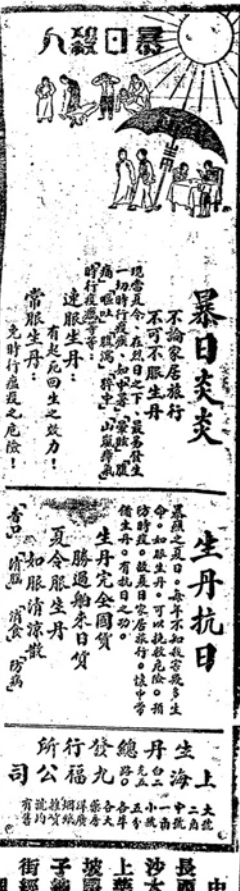 暴日殺人
生丹
暴日炎炎
不論家居旅行
不可不服生丹
現當夏令、在烈日之下、最易發生
一切時行痧疫、如中暑、暈眩、腹
痛、嘔吐、腹瀉、猝中、山嵐瘴氣
時行疫癘等等：
速服生丹：
有起死回生之效力！
常服生丹：
免時行瘟疫之危險！
生丹抗日
暴烈之夏日。每年不知殺害幾多生
命。如服生丹。可以挽救危險。預
防時疫。故夏日家居旅行。懷中常
備生丹。有抗日之功。
生丹完全國貨
勝過舶來日貨
夏令服生丹
如服清涼散
香口 清腦 消食 防病
上海
生丹
總發行所
九福公司
大號二角
中號一角
小號五分
各大藥房
洋廣雜貨
烟紙號內
均有售